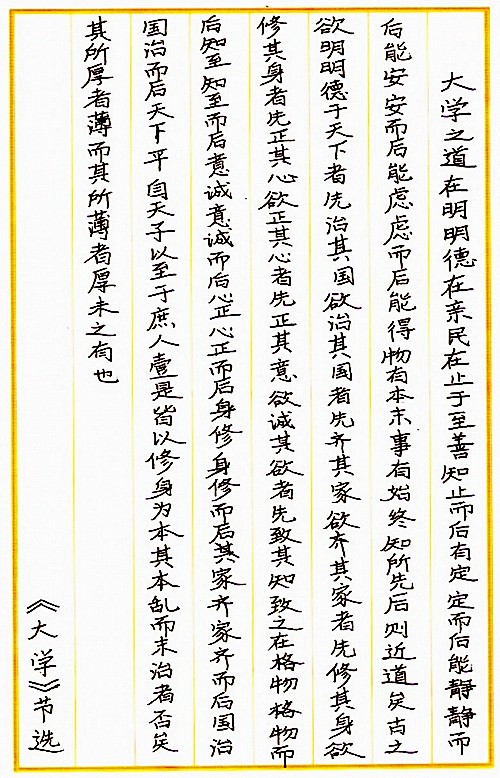 大学之道在明明德在亲民在止于至善知止而后有定定而后能静静而
后能安安而后能虑虑而后能得物有本末事有始终知所先后则近道矣古之
欲明明德于天下者先治其国欲治其国者先齐其家欲齐其家者先修其身欲
修其身者先正其心欲正其心者先正其意欲诚其欲者先致其知致之在格物格物而
后知至知至而后意诚意诚而后心正心正而后身修身修而后其家齐家齐而后国治
国治而后天下平自天子以至于庶人壹是皆以修身为本其本乱而末治者否矣
其所厚者薄而其所薄者厚未之有也
《大学》节选